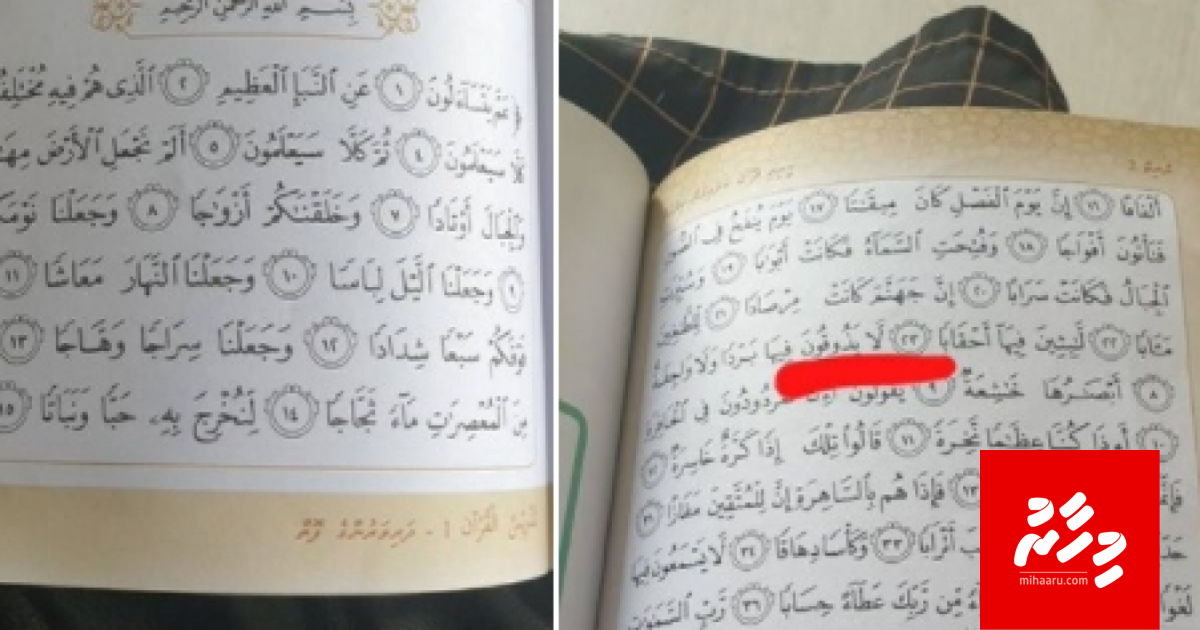 بِسْمِ اللَّهِ الرَّحْمَٰنِ الرَّحِيمِ
﴿ عَمَّ يَتَسَآءَلُونَ ١ عَنِ ٱلنَّبَإِ ٱلْعَظِيمِ ٢ ٱلَّذِى هُمْ فِيهِ مُخْتَلِفُ
كَلَّا سَيَعْلَمُونَ ٤ ثُمَّ كَلَّا سَيَعْلَمُونَ ٥ أَلَمْ نَجْعَلِ ٱلْأَرْضَ مِهَ
وَٱلْجِبَالَ أَوْتَادًا ٧ وَخَلَقْنَٰكُمْ أَزْوَٰجًا ٨ وَجَعَلْنَا نَوْمَكُ
٩ وَجَعَلْنَا ٱلَّيْلَ لِبَاسًا ١٠ وَجَعَلْنَا ٱلنَّهَارَ مَعَاشًا ١١
فَوْقَكُمْ سَبْعًا شِدَادًا ١٢ وَجَعَلْنَا سِرَاجًا وَهَّاجًا ١٣
مِنَ ٱلْمُعْصِرَٰتِ مَآءً ثَجَّاجًا ١٤ لِّنُخْرِجَ بِهِۦ حَبًّا وَنَبَاتًا ١٥
ٱلْقُرْآن 1 - ދަރިވަރުންގެ ފޮތް
أَلْفَافًا ١٦ إِنَّ يَوْمَ ٱلْفَصْلِ كَانَ مِيقَٰتًا ١٧ يَوْمَ يُنفَخُ فِى ٱلصُّورِ
فَتَأْتُونَ أَفْوَاجًا ١٨ وَفُتِحَتِ ٱلسَّمَآءُ فَكَانَتْ أَبْوَٰبًا ١٩ وَسُيِّرَتِ
ٱلْجِبَالُ فَكَانَتْ سَرَابًا ٢٠ إِنَّ جَهَنَّمَ كَانَتْ مِرْصَادًا ٢١ لِّلطَّٰغِينَ
مَـَٔابًا ٢٢ لَّٰبِثِينَ فِيهَآ أَحْقَابًا ٢٣ لَّا يَذُوقُونَ فِيهَا بَرْدًا وَلَا وَاجِفَةٌ
٨ أَبْصَٰرُهَا خَٰشِعَةٌ ٩ يَقُولُونَ فِى ٱلْحَافِرَةِ
١٠ أَءِذَا كُنَّا عِظَٰمًا نَّخِرَةً ١١ قَالُوا۟ تِلْكَ إِذًا كَرَّةٌ خَاسِرَةٌ ١٢
١٣ فَإِذَا هُم بِٱلسَّاهِرَةِ إِنَّ لِلْمُتَّقِينَ مَفَازًا ٣١
أَتْرَابًا ٣٣ وَكَأْسًا دِهَاقًا ٣٤ لَّا يَسْمَعُونَ فِيهَا
لَغْوًا مِّن رَّبِّكَ عَطَآءً حِسَابًا ٣٦ رَّبِّ ٱلسَّمَٰوَٰتِ
މިހާރު
mihaaru.com